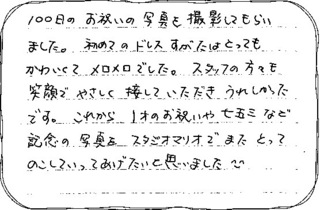 100日の お祝いの 写真を 撮影してもらい
ました。 初めての ドレス すがたは とっても
かわいくて メロメロでした。 スタッフの 方々も
笑顔で やさしく 接していただき うれしかった
です。 これから 1才のお祝いや 七五三 など
記念の 写真を スタジオマリオで また とって
のこしていってあげたいと思いました